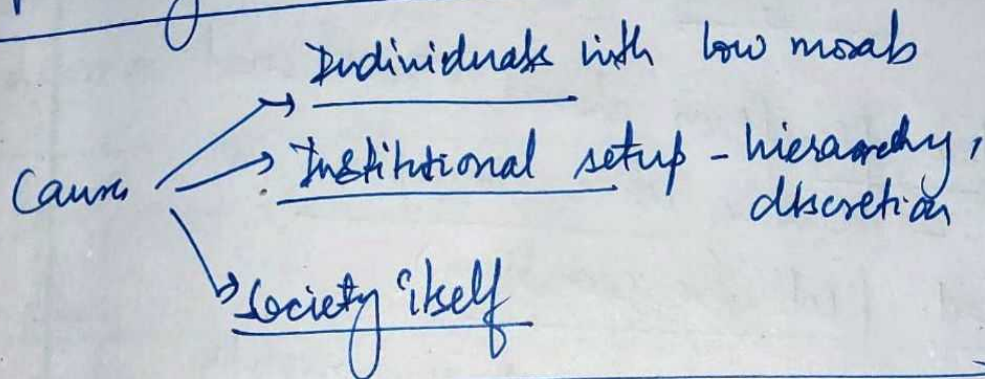 Individuals with low morals
Causes
Institutional setup - hierarchy,
discretion
Society itself